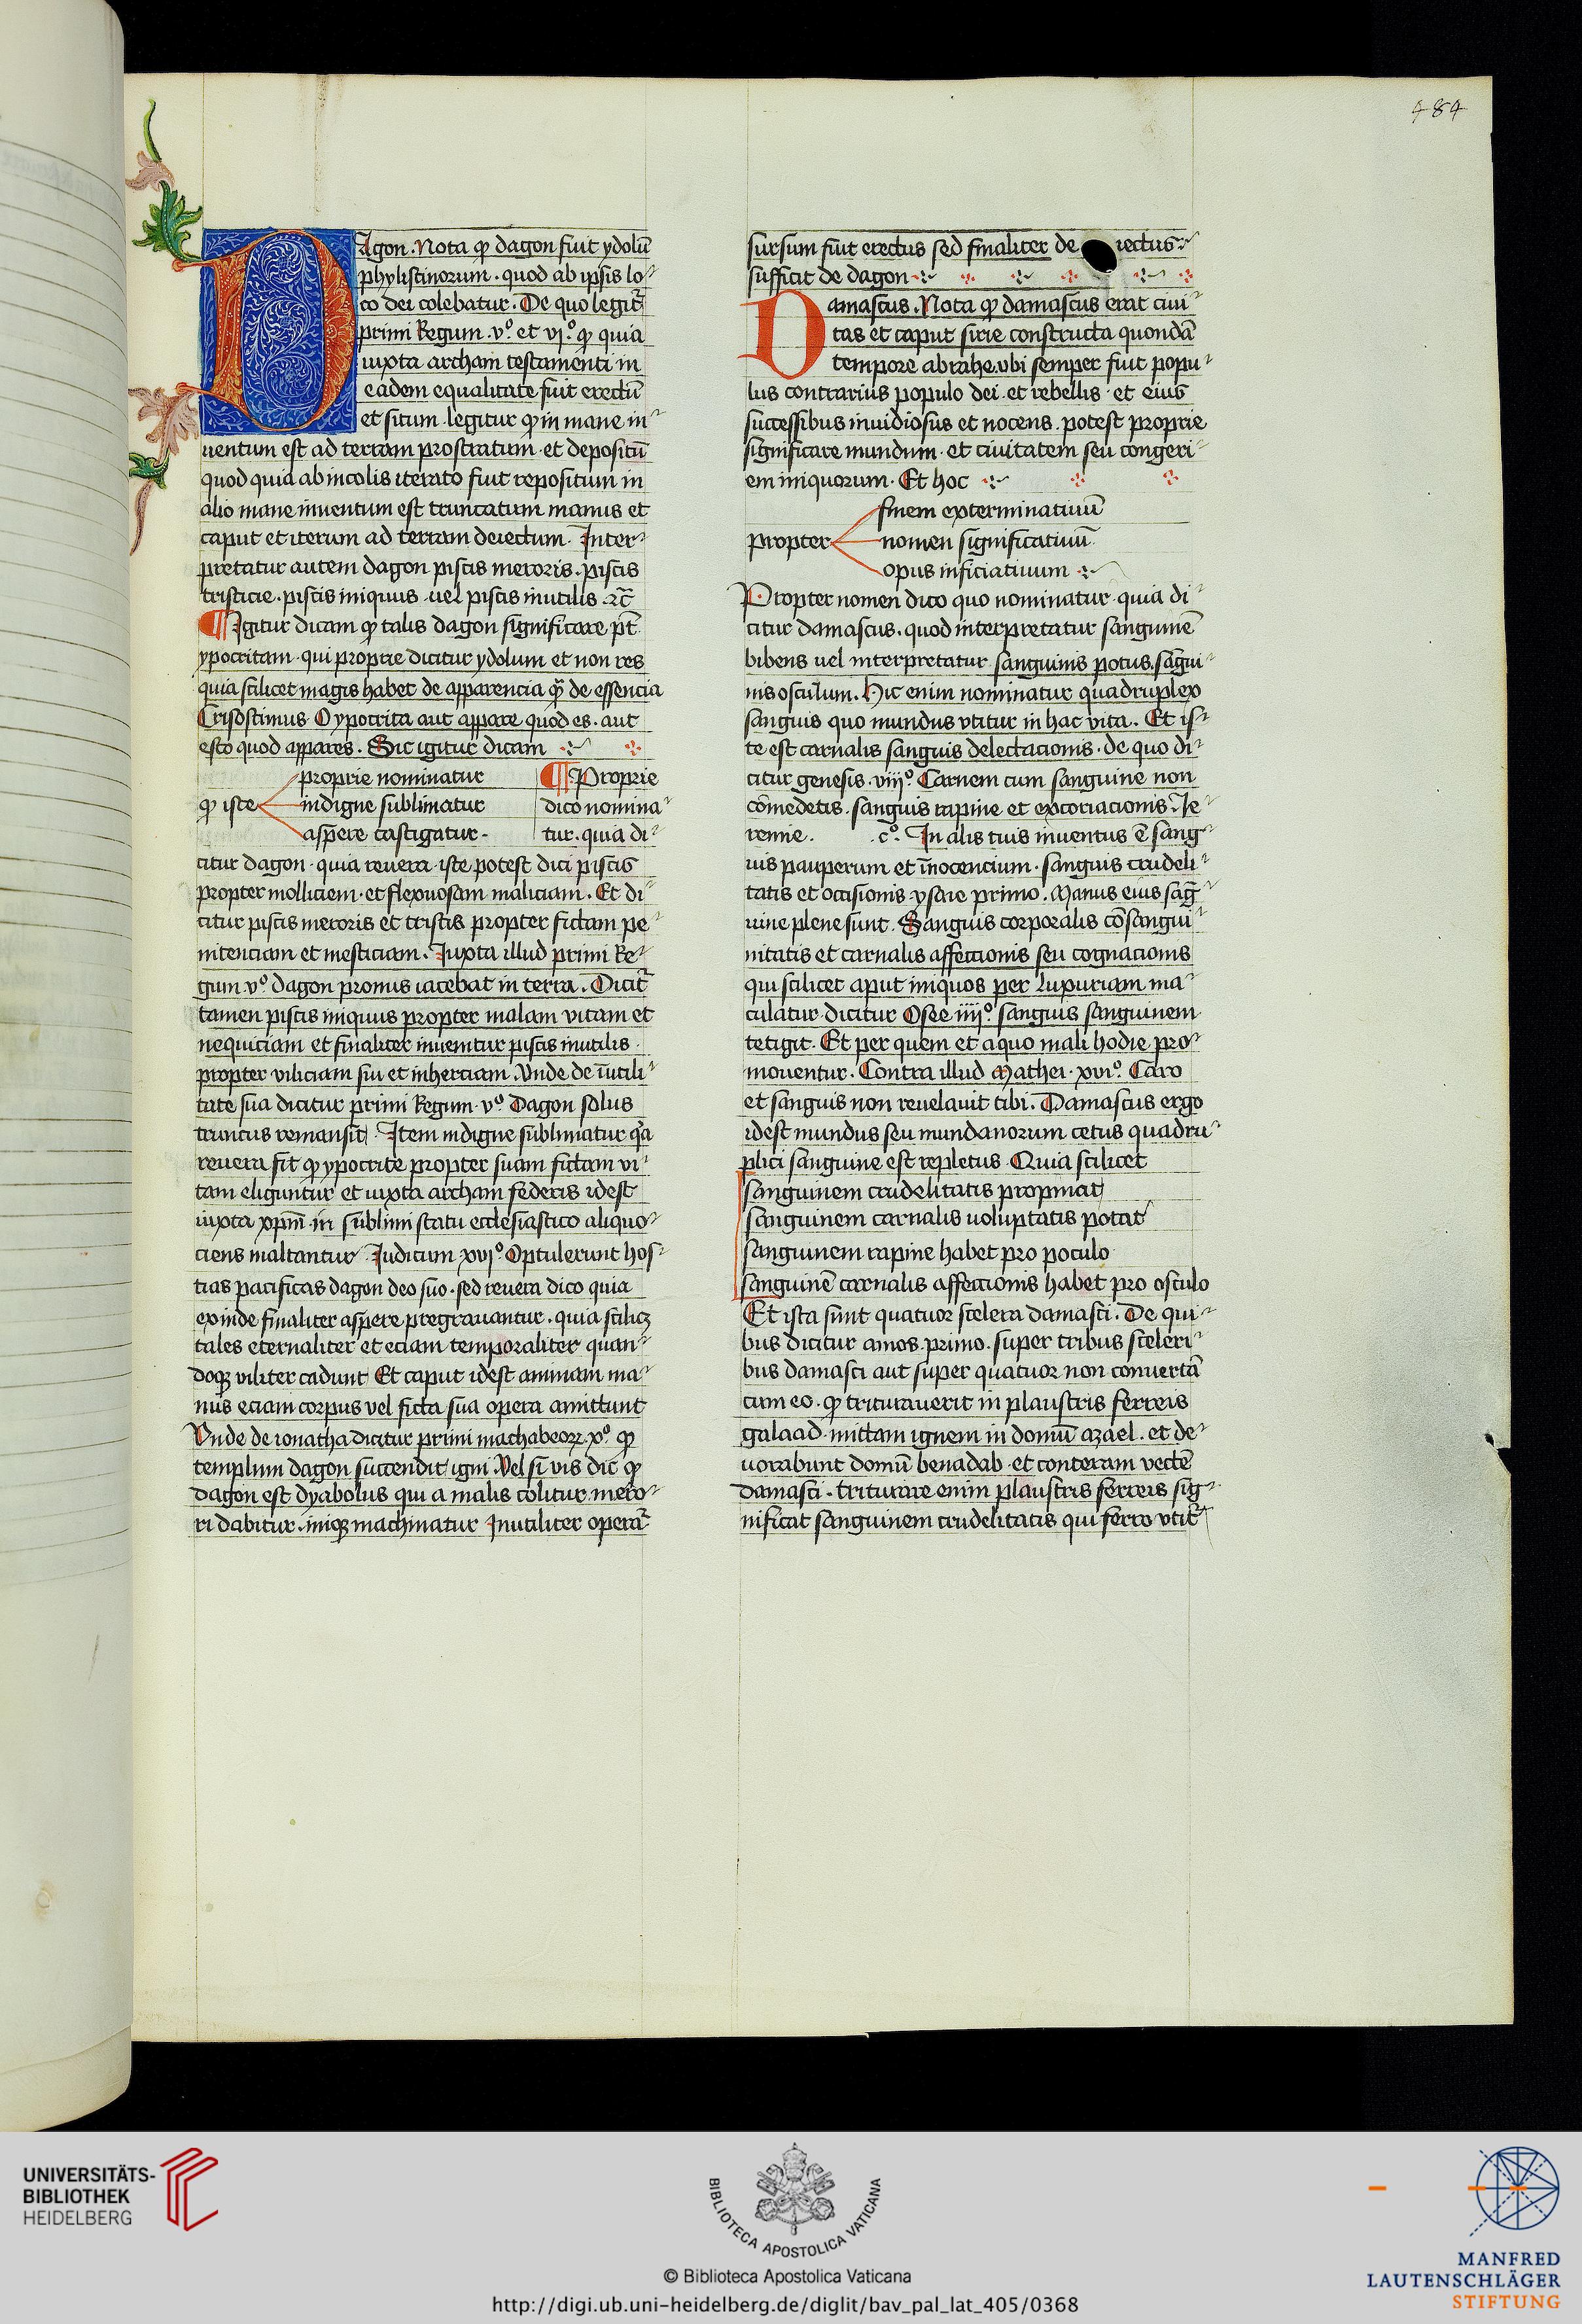 484
DAgon. Nota qꝫ dagon fuit ydolū
phylistinorum. quod ab ipsis lo-
co dei colebatur. De quo legit᷑
primi Regum. v.º et vj.º qꝫ quia
iuxta archam testamenti in
eadem equalitate fuit erectū
et situm. legitur qꝫ in mane in-
uentum est ad terram prostratum. et depositū
quod quia ab incolis iterato fuit repositum in
alio mane inuentum est truncatum manus et
caput et iterum ad terram deiectum. Inter-
pretatur autem dagon piscis meroris. piscis
tristicie. piscis iniquus. uel piscis inutilis ⁊c̄
¶ Igitur dicam qꝫ talis dagon significare pt̄
ypocritam. qui proprie dicitur ydolum et non res
quia scilicet magis habet de apparencia qꝫ̄ de essencia
Crisostimus O ypocrita aut appare quod es. aut
esto quod appares. Sic igitur dicam
qꝫ iste
proprie nominatur
indigne sublimatur
aspere castigatur.
¶ Proprie
dico nomina-
tur. quia di-
citur dagon. quia reuera iste potest dici piscis
propter molliciem. et flexuosam maliciam. Et di-
citur piscis meroris et tristis propter fictam pe-
nitenciam et mesticiam. Iuxta illud primi Re-
gum v.º dagon pronus iacebat in terra. Dicit᷑
tamen piscis iniquus propter malam vitam et
nequiciam et finaliter inuenitur piscis inutilis.
propter viliciam sui et inherciam. Vnde de īutili-
tate sua dicitur primi Regum. v.º Dagon solus
truncus remansit. Item indigne sublimatur qͣa
reuera fit qꝫ ypocrite propter suam fictam vi-
tam eliguntur et iuxta archam federis idest
iuxta xpm̄ in sublimi statu ecclesiastico aliquo-
ciens maltantur. Iudicum xvj.º Optulerunt hos-
tias pacificas dagon deo suo. sed reuera dico quia
exinde finaliter aspere pregrauantur. quia scilicꝫ
tales eternaliter et eciam temporaliter quan-
doqꝫ viliter cadunt Et caput idest animam ma-
nus eciam corpus vel ficta sua opera amittunt
Vnde de ionatha dicitur primi machabeoꝝ. x.º qꝫ
templum dagon succendit igni. Vel si vis dic̄ qꝫ
dagon est dyabolus qui a malis colitur. mero-
ri dabitur. iniqꝫ machinatur Inutiliter operat᷑
sursum fuit erectus sed finaliter de iectus.
sufficit de dagon
Damascus. Nota qꝫ damascus erat ciui-
tas et caput sirie constructa quondā
tempore abrahe. vbi semper fuit popu-
lus contrarius populo dei. et rebellis. et eius
successibus inuidiosus et nocens. potest proprie
significare mundum. et ciuitatem seu congeri-
em iniquorum. Et hoc
propter
finem exterminatiuū
nomen significatiuū.
opus inficiatiuum
Propter nomen dico quo nominatur. quia di-
citur damascus. quod interpretatur sanguinē
bibens uel interpretatur sanguinis potus. sāgui-
nis osculum. Hic enim nominatur quadruplex
sanguis quo mundus vtitur in hac vita. Et is-
te est carnalis sanguis delectacionis. de quo di-
citur genesis. viij.º Carnem cum sanguine non
cōmedetis. sanguis rapine et excoriacionis. Je-
remie. c.º In alis tuis inuentus ē sang-
uis pauperum et īnocencium. sanguis crudeli-
tatis et occisionis. ysaie primo. Manus eius sāg-
uine plene sunt. Sanguis corporalis cōsangui-
nitatis et carnalis affeccionis seu cognacionis
qui scilicet aput iniquos per luxuriam ma-
culatur. dicitur Osee iiij.º sanguis sanguinem
tetigit. Et per quem et a quo mali hodie pro-
mouentur. Contra illud Mathei. xvi.º Caro
et sanguis non reuelauit tibi. Damascus ergo
idest mundus seu mundanorum cetus quadru-
plici sanguine est repletus. Quia scilicet
sanguinem crudelitatis propinat
sanguinem carnalis uoluptatis potat
sanguinem rapine habet pro poculo
sanguinē carnalis affeccionis habet pro osculo
Et ista sunt quatuor scelera damasci. De qui-
bus dicitur amos. primo. super tribus sceleri-
bus damasci aut super quatuor non conuertā
cum eo. qꝫ triturauerit in plaustris ferreis
galaad. mittam ignem in domū azael. et de-
uorabunt domū benadab. et conteram vectē
damasci. triturare enim plaustris ferreis sig-
nificat sanguinem crudelitatis qui ferro vtit᷑
UNIVERSITÄTS-
BIBLIOTHEK
HEIDELBERG
BIBLIOTECA APOSTOLICA VATICANA
© Biblioteca Apostolica Vaticana
http://digi.ub.uni-heidelberg.de/diglit/bav_pal_lat_405/0368
MANFRED
LAUTENSCHLÄGER
STIFTUNG